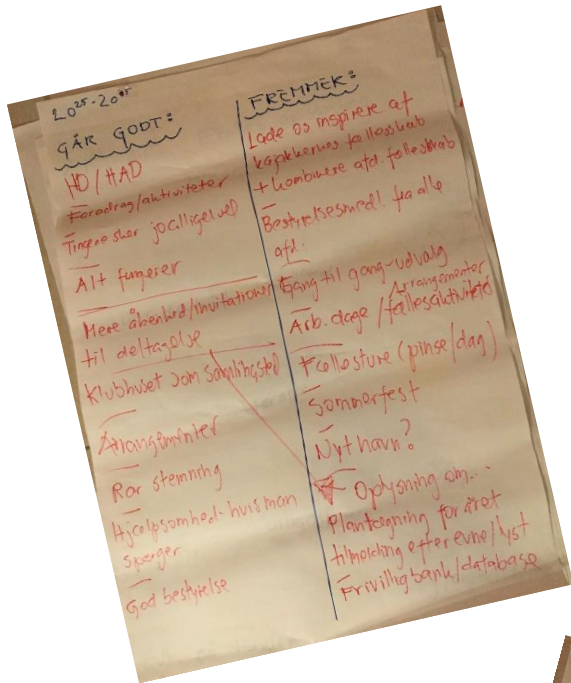 GÅR GODT:
HO/HAD
Foredrag/aktiviteter
Tingene sker jo alligevel
Alt fungerer
Mere åbenhed/invitationer
til deltagelse
Klubhuset som samlingsted
Arrangementer
Rar stemning
Hjælpsomhed-hvis man
spørger
God bestyrelse
FREMMER:
Lade os inspirere af
kajakkernes fællesskab
+ kombinere afd. fællesskab
Bestyrelsesmedl. fra alle
afd.
Gang til gang-udvalg
Arrangementer
Arb. dage/fællesaktivitet
Fællesture (pinse/dag)
Sommerfest
Nyt havn?
Oplysning om...
Planlægning for året
tilmelding efter evne/lyst
Frivilligbank/database